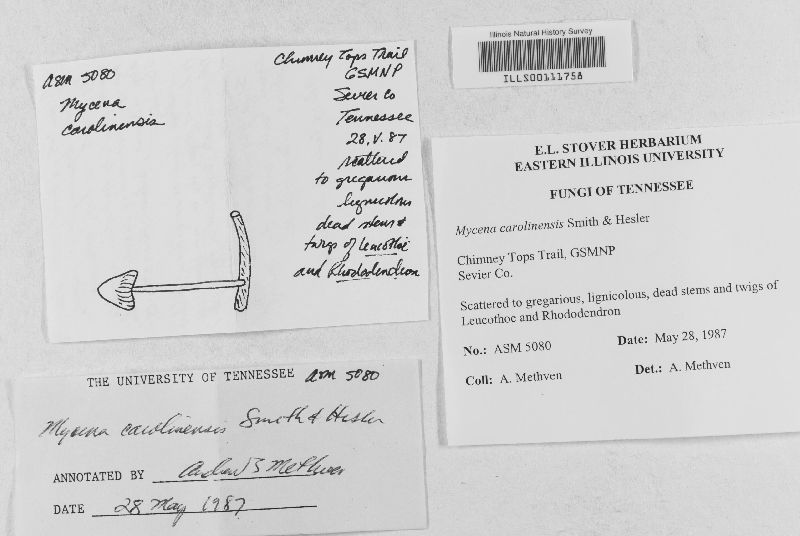 ASM 5080
Mycena
carolinensis
Chimney Tops Trail
GSMNP
Sevier Co
Tennessee
28.V.87
scattered
to gregarious
lignicolous
dead stems &
twigs of Leucothoe
and Rhododendron
Illinois Natural History Survey
ILLS00111758
E.L. STOVER HERBARIUM
EASTERN ILLINOIS UNIVERSITY
FUNGI OF TENNESSEE
Mycena carolinensis Smith & Hesler
Chimney Tops Trail, GSMNP
Sevier Co.
Scattered to gregarious, lignicolous, dead stems and twigs of
Leucothoe and Rhododendron
No.: ASM 5080 Date: May 28, 1987
Coll: A. Methven Det.: A. Methven
THE UNIVERSITY OF TENNESSEE ASM 5080
Mycena carolinensis Smith & Hesler
ANNOTATED BY Andrew S Methven
DATE 28 May 1987